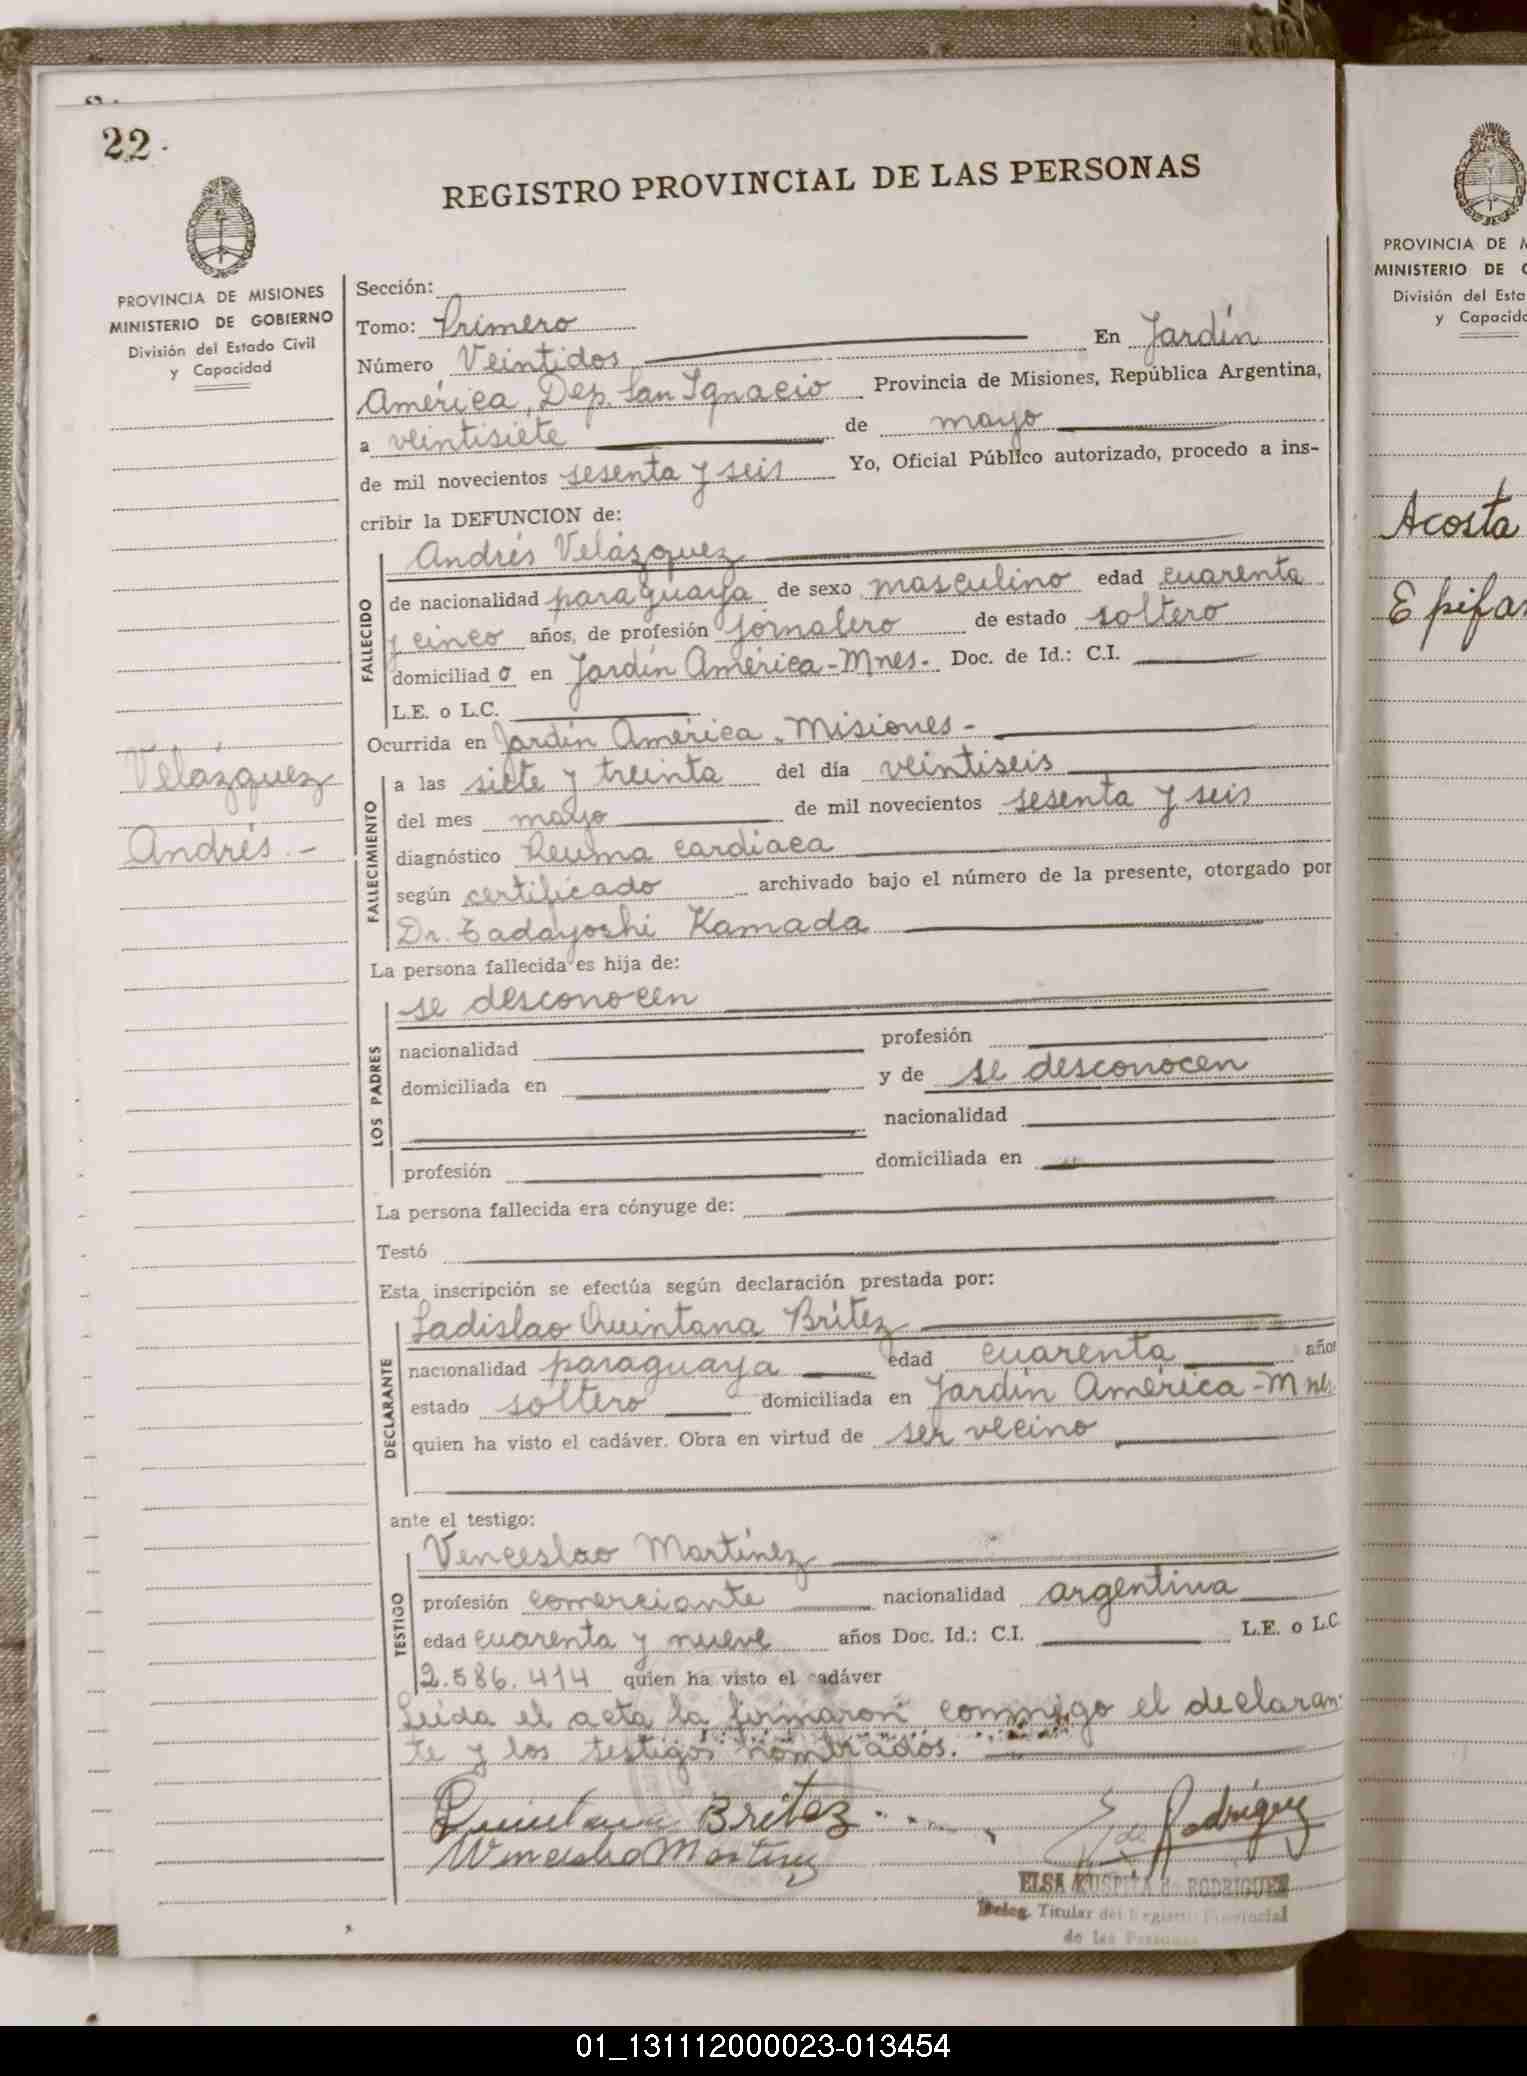 22.
REGISTRO PROVINCIAL DE LAS PERSONAS
PROVINCIA DE MISIONES
MINISTERIO DE GOBIERNO
División del Estado Civil
y Capacidad
Sección:
Tomo: Primero
Número Veintidos En Jardín
América, Dep. San Ignacio Provincia de Misiones, República Argentina,
a veintisiete de mayo
de mil novecientos sesenta y seis Yo, Oficial Público autorizado, procedo a ins-
cribir la DEFUNCION de:
FALLECIDO
Andrés Velázquez
de nacionalidad paraguaya de sexo masculino edad cuarenta
y cinco años, de profesión jornalero de estado soltero
domiciliado en Jardín América-Mnes. Doc. de Id.: C.I.
L.E. o L.C.
Ocurrida en Jardín América. Misiones-
Velázquez
Andrés.-
FALLECIMIENTO
a las siete y treinta del día veintiseis
del mes mayo de mil novecientos sesenta y seis
diagnóstico Reuma cardiaca
según certificado archivado bajo el número de la presente, otorgado por
Dr. Tadayoshi Kamada
La persona fallecida es hija de:
LOS PADRES
se desconocen
nacionalidad profesión
domiciliada en y de se desconocen
nacionalidad
profesión domiciliada en
La persona fallecida era cónyuge de:
Testó
Esta inscripción se efectúa según declaración prestada por:
DECLARANTE
Ladislao Quintana Brítez
nacionalidad paraguaya edad cuarenta años
estado soltero domiciliada en Jardín América-Mnes.
quien ha visto el cadáver. Obra en virtud de ser vecino
ante el testigo:
TESTIGO
Venceslao Martínez
profesión comerciante nacionalidad argentina
edad cuarenta y nueve años Doc. Id.: C.I. L.E. o L.C
2.586.414 quien ha visto el cadáver
Leída el acta la firmaron conmigo el declaran-
te y los testigos nombrados.
Quintana Britez
Wenceslao Martinez
E. de Rodríguez
ELSA de RODRIGUEZ
Deleg. Titular del Registro Provincial
de las Personas
PROVINCIA DE M
MINISTERIO DE G
División del Esta
y Capacida
Acosta
Epifan
01_131112000023-013454